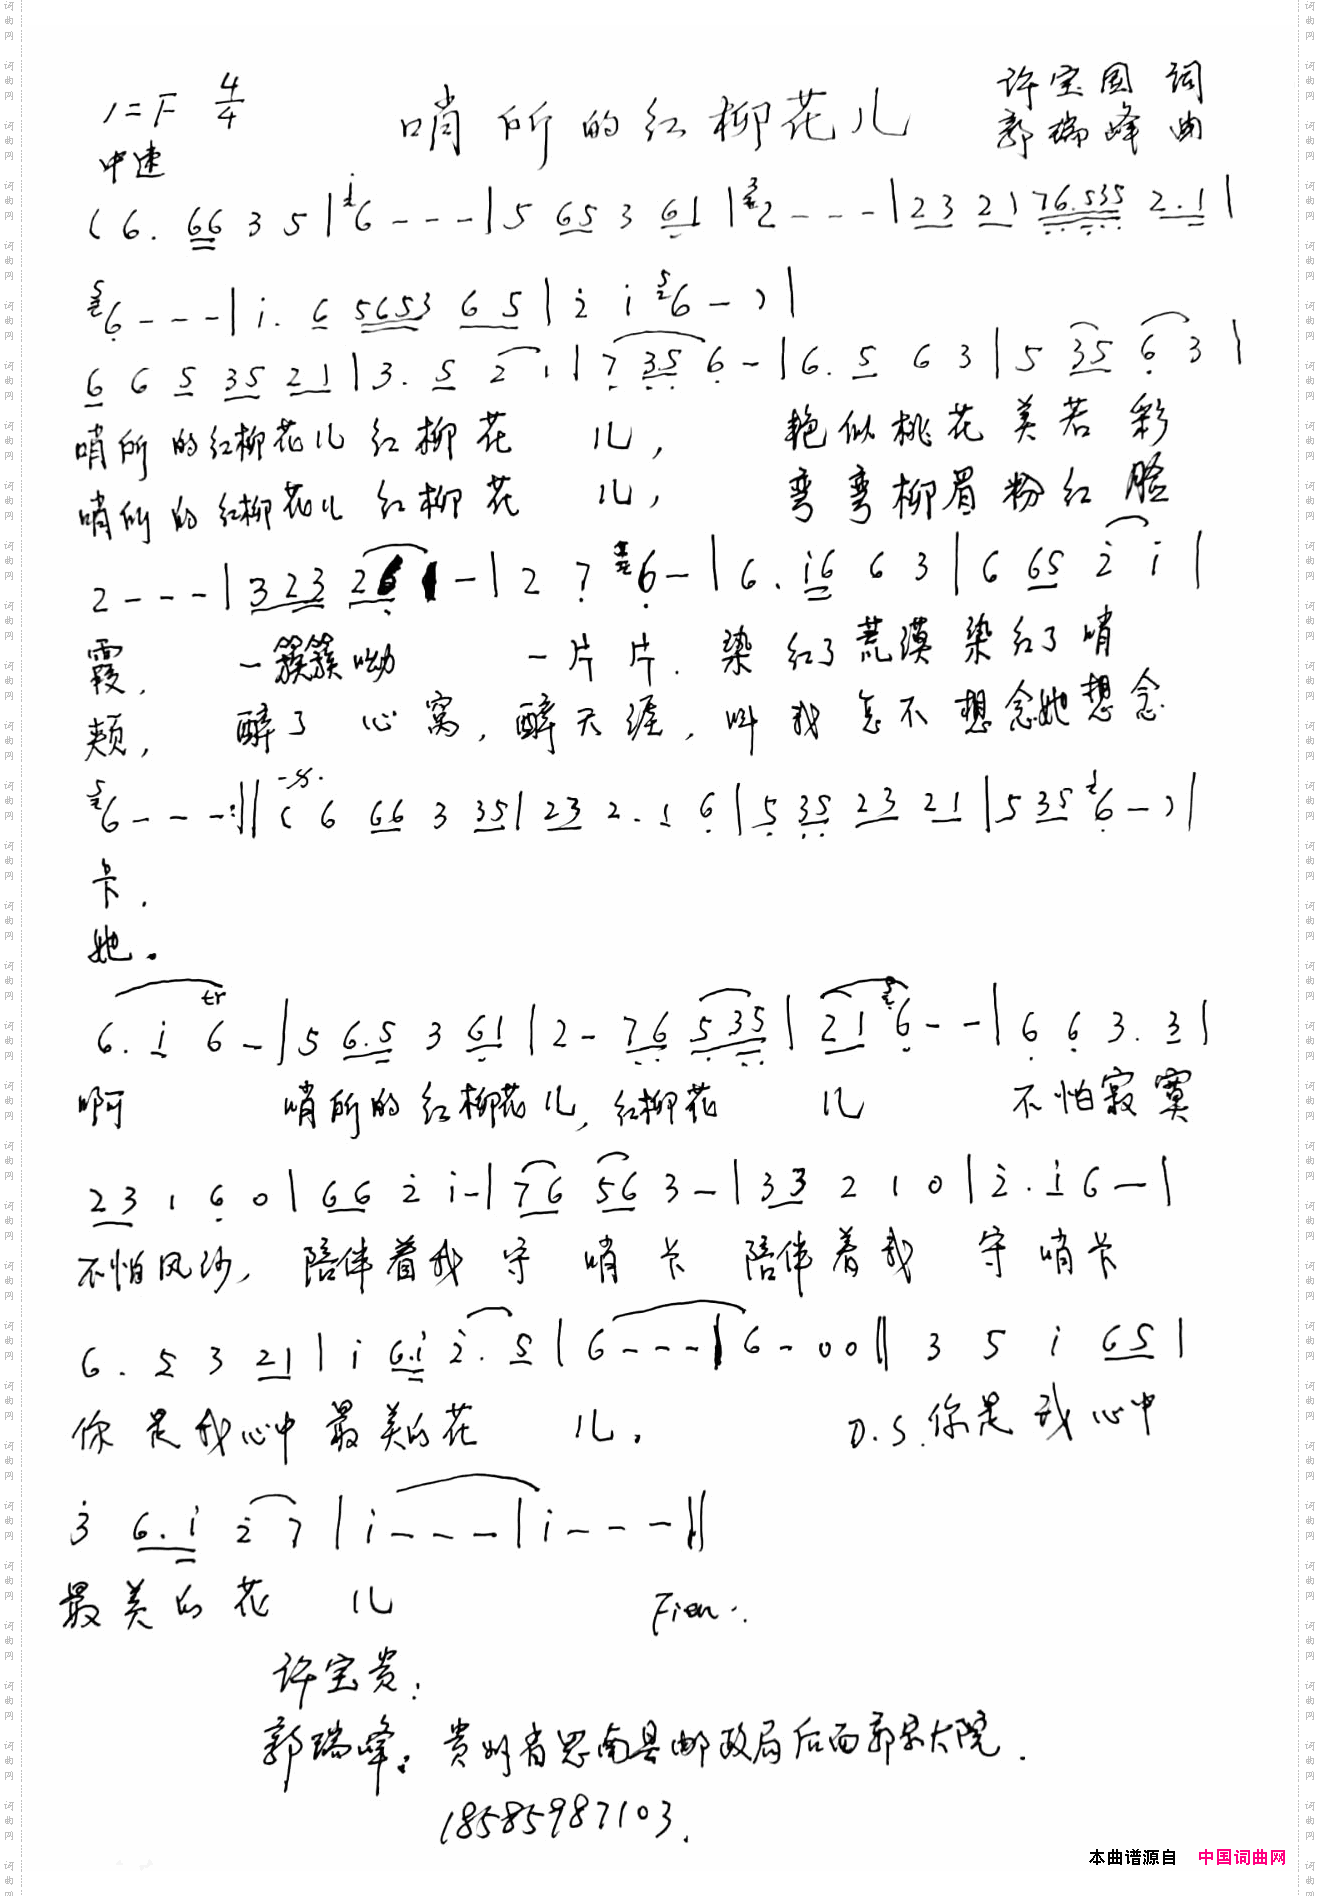 1=F 4/4 哨所的红柳花儿 许宝国 词
中速 郭瑞峰 曲
( 6. 66 3 5 | i 6 - - - | 5 65 3 61 | 3 2 - - - | 23 21 76.535 2.1 |
5 6 - - - | i. 6 5653 6 5 | 2 i 5 6 - ) |
6 6 5 35 21 | 3. 5 2 1 | 7 35 6 - | 6. 5 6 3 | 5 35 6 3 |
哨所的红柳花儿 红柳花 儿, 艳似桃花 美若彩
哨所的红柳花儿 红柳花 儿, 弯弯柳眉 粉红脸
2 - - - | 3 23 26 1 - | 2 7 6 - | 6. i6 6 3 | 6 65 2 i |
霞, 一簇簇呦 一片片. 染红了荒漠 染红了哨
颊, 醉了心窝, 醉天涯, 叫我怎不想念她想念
5 6 - - - :|| ( 6 66 3 35 | 23 2. 1 6 | 5 35 23 21 | 5 35 i 6 - ) |
卡.
她。
6. i 6 tr - | 5 6.5 3 61 | 2 - 76 535 | 21 5 6 - - | 6 6 3. 3 |
啊 哨所的红柳花儿, 红柳花 儿 不怕寂寞
23 1 6 0 | 66 2 i - | 76 56 3 - | 33 2 1 0 | 2. i 6 - |
不怕风沙, 陪伴着我 守 哨 卡 陪伴着我 守哨卡
6. 5 3 21 | i 6.i 2. 5 | 6 - - - | 6 - 0 0 || 3 5 i 65 |
你是我心中 最美的花 儿. D.S. 你是我心中
3 6.i 2 7 | i - - - | i - - - ||
最美的花 儿 Fien..
许宝贵:
郭瑞峰: 贵州省思南县邮政局后面郭家大院.
18585987103.
本曲谱源自 中国词曲网